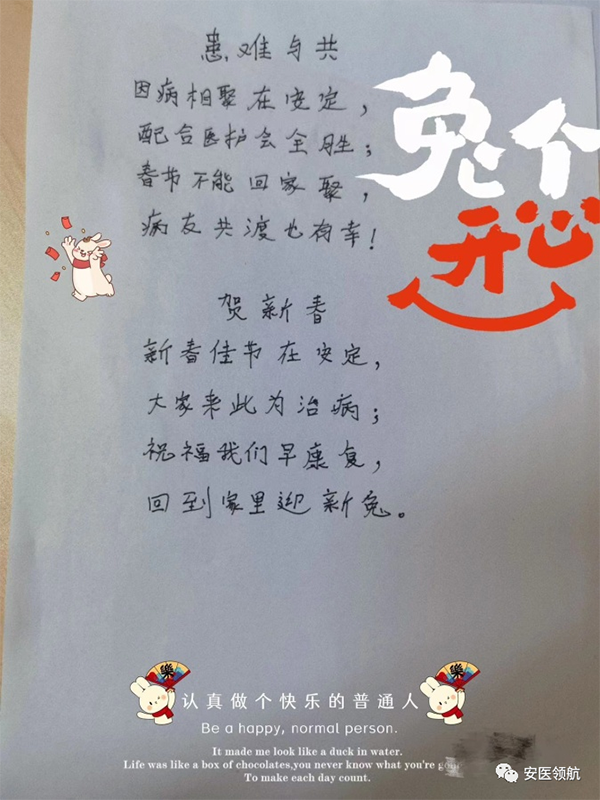 患难与共
因病相聚在安定，
配合医护会全胜；
春节不能回家聚，
病友共渡也有幸！
兔个
开心
贺新春
新春佳节在安定，
大家来此为治病；
祝福我们早康复，
回到家里迎新兔。
樂
樂
认真做个快乐的普通人
Be a happy, normal person.
It made me look like a duck in water.
Life was like a box of chocolates,you never know what you're
To make each day count.
安医领航